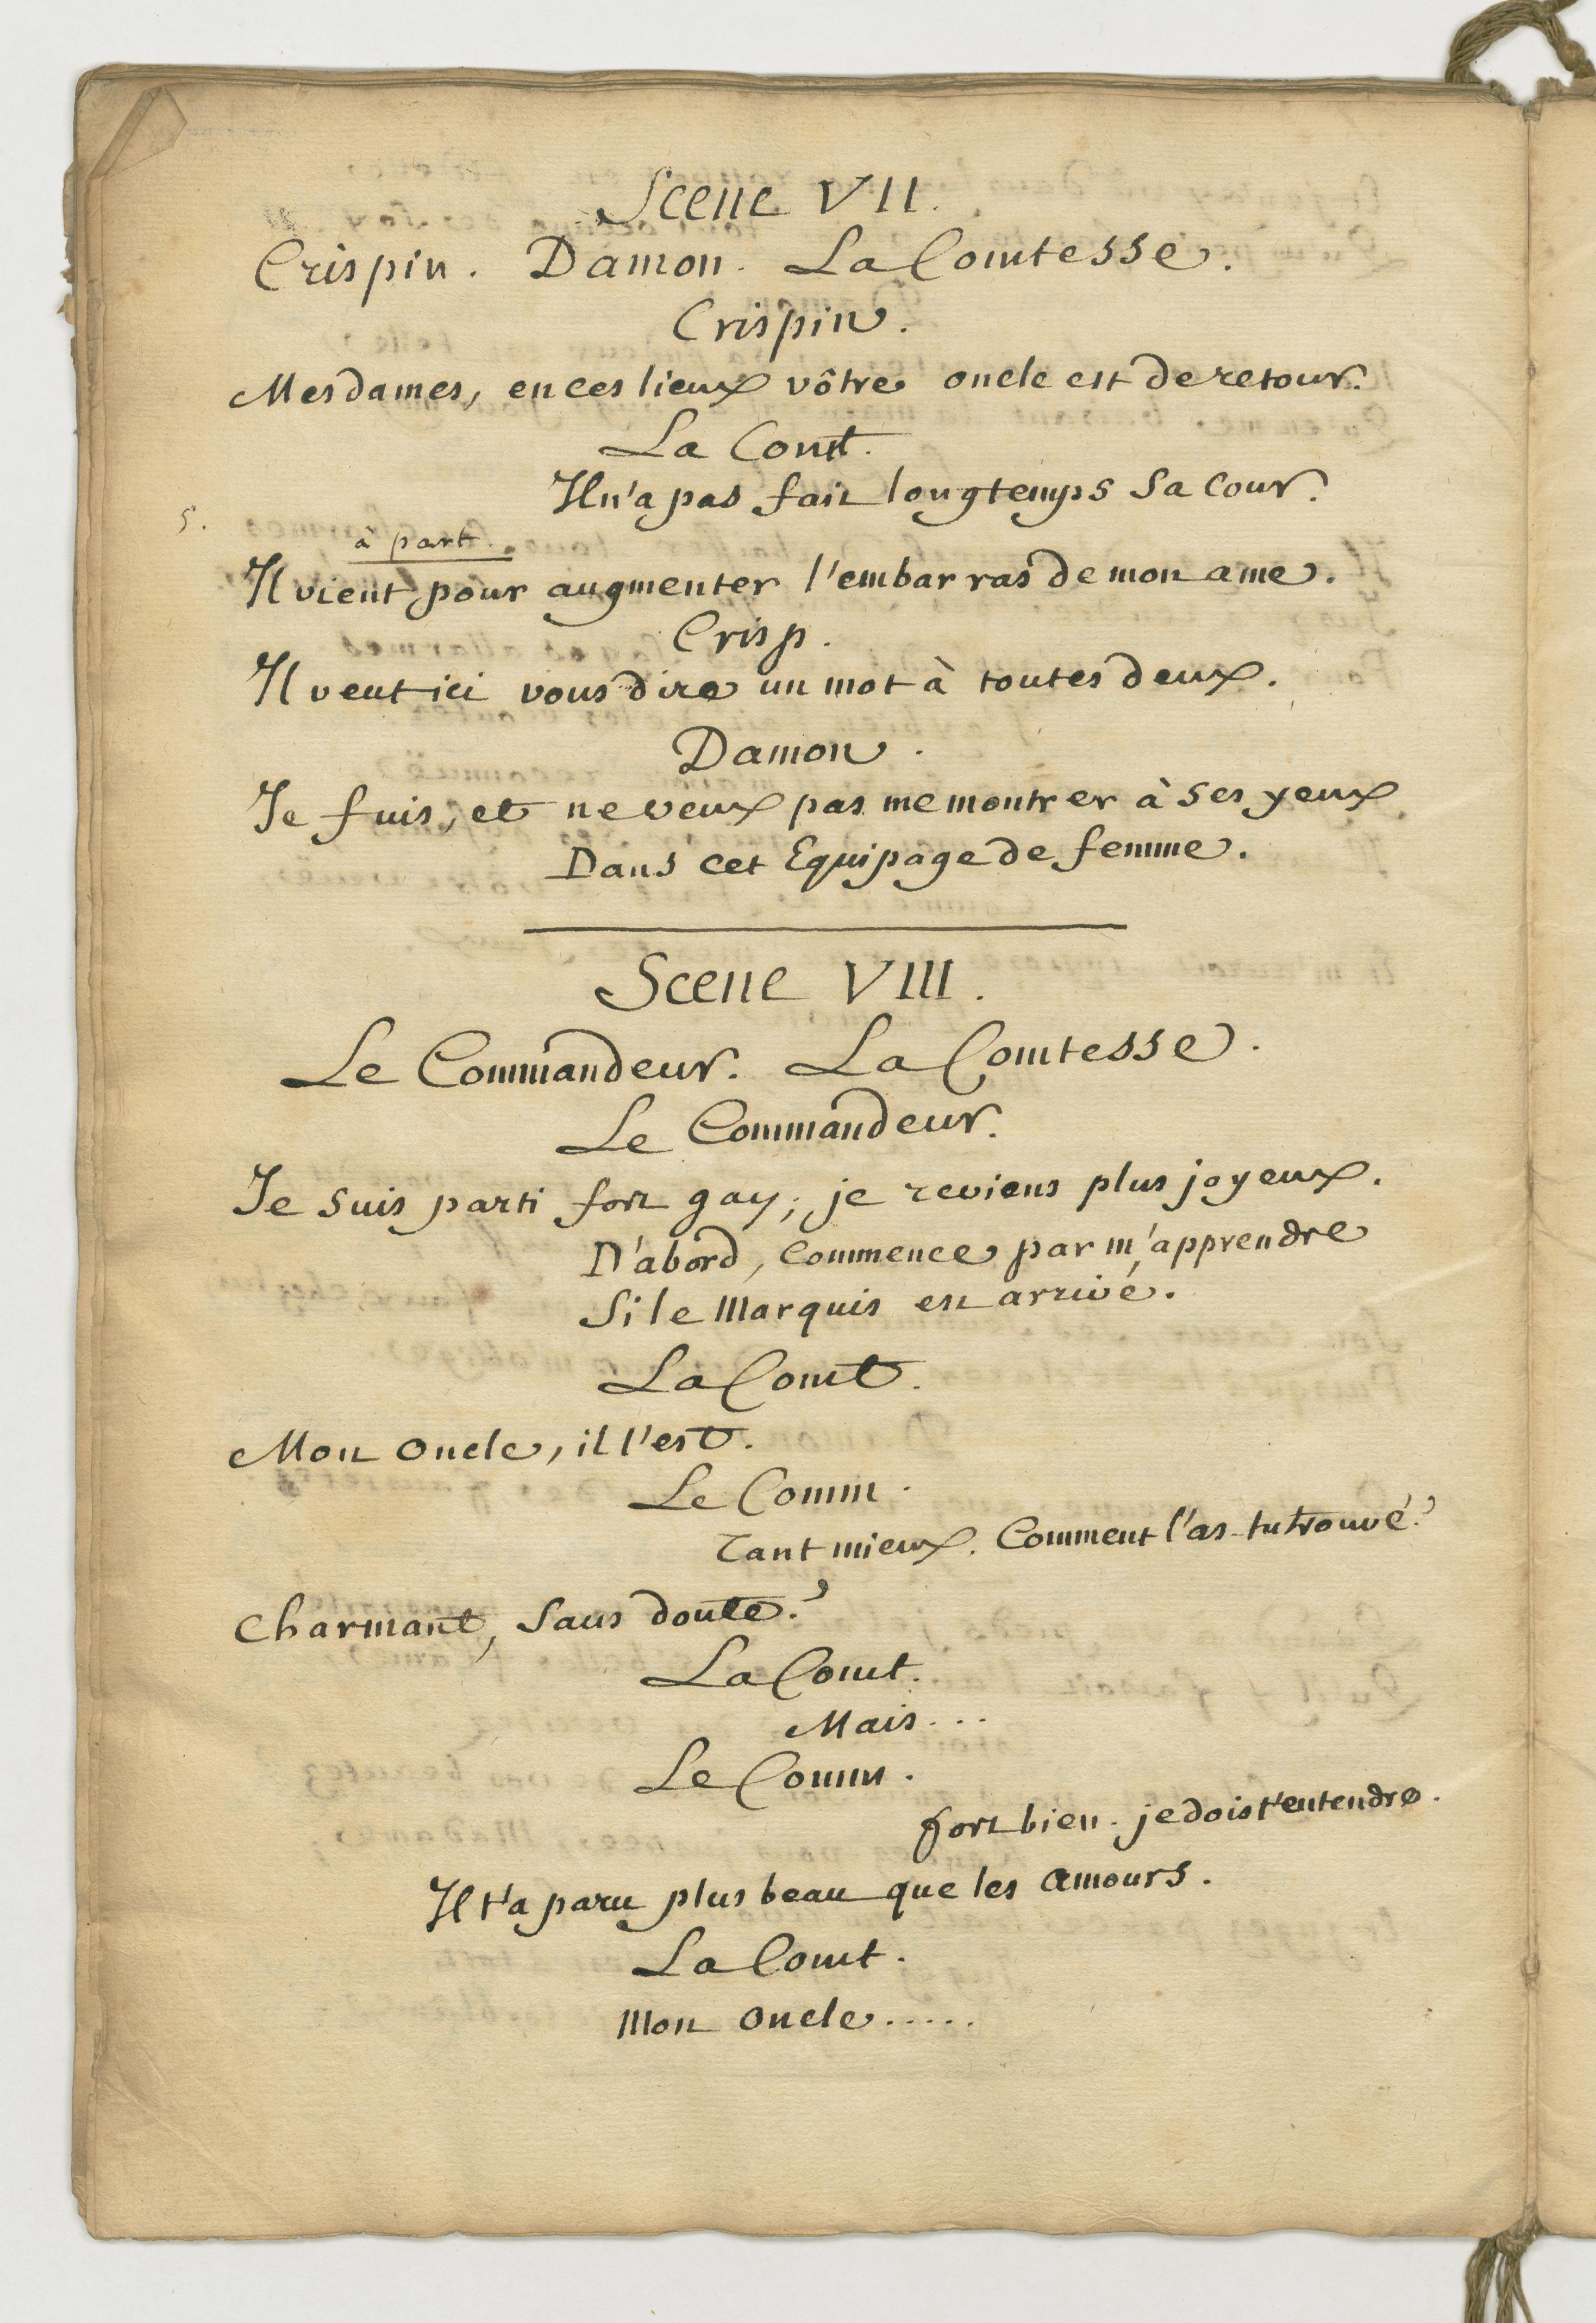 Scene VII.
Crispin. Damon. La Comtesse.
Crispin.
Mesdames, en ces lieux vôtre oncle est de retour.
La Comt.
Il n'a pas fait longtemps sa cour.
5.
à part.
Il vient pour augmenter l'embarras de mon ame.
Crisp.
Il veut ici vous dire un mot à toutes deux.
Damon.
Je fuis, et ne veux pas me montrer à ses yeux
Dans cet Equipage de femme.
Scene VIII.
Le Commandeur. La Comtesse.
Le Commandeur.
Je suis parti fort gay; je reviens plus joyeux.
D'abord, commence par m'apprendre
Si le Marquis est arrivé.
La Comt.
Mon oncle, il l'est.
Le Comm.
Tant mieux. Comment l'as-tu trouvé?
Charmant, sans doute?
La Comt.
Mais...
Le Comm.
fort bien. je dois t'entendre.
Il t'a paru plus beau que les amours.
La Comt.
Mon oncle.....